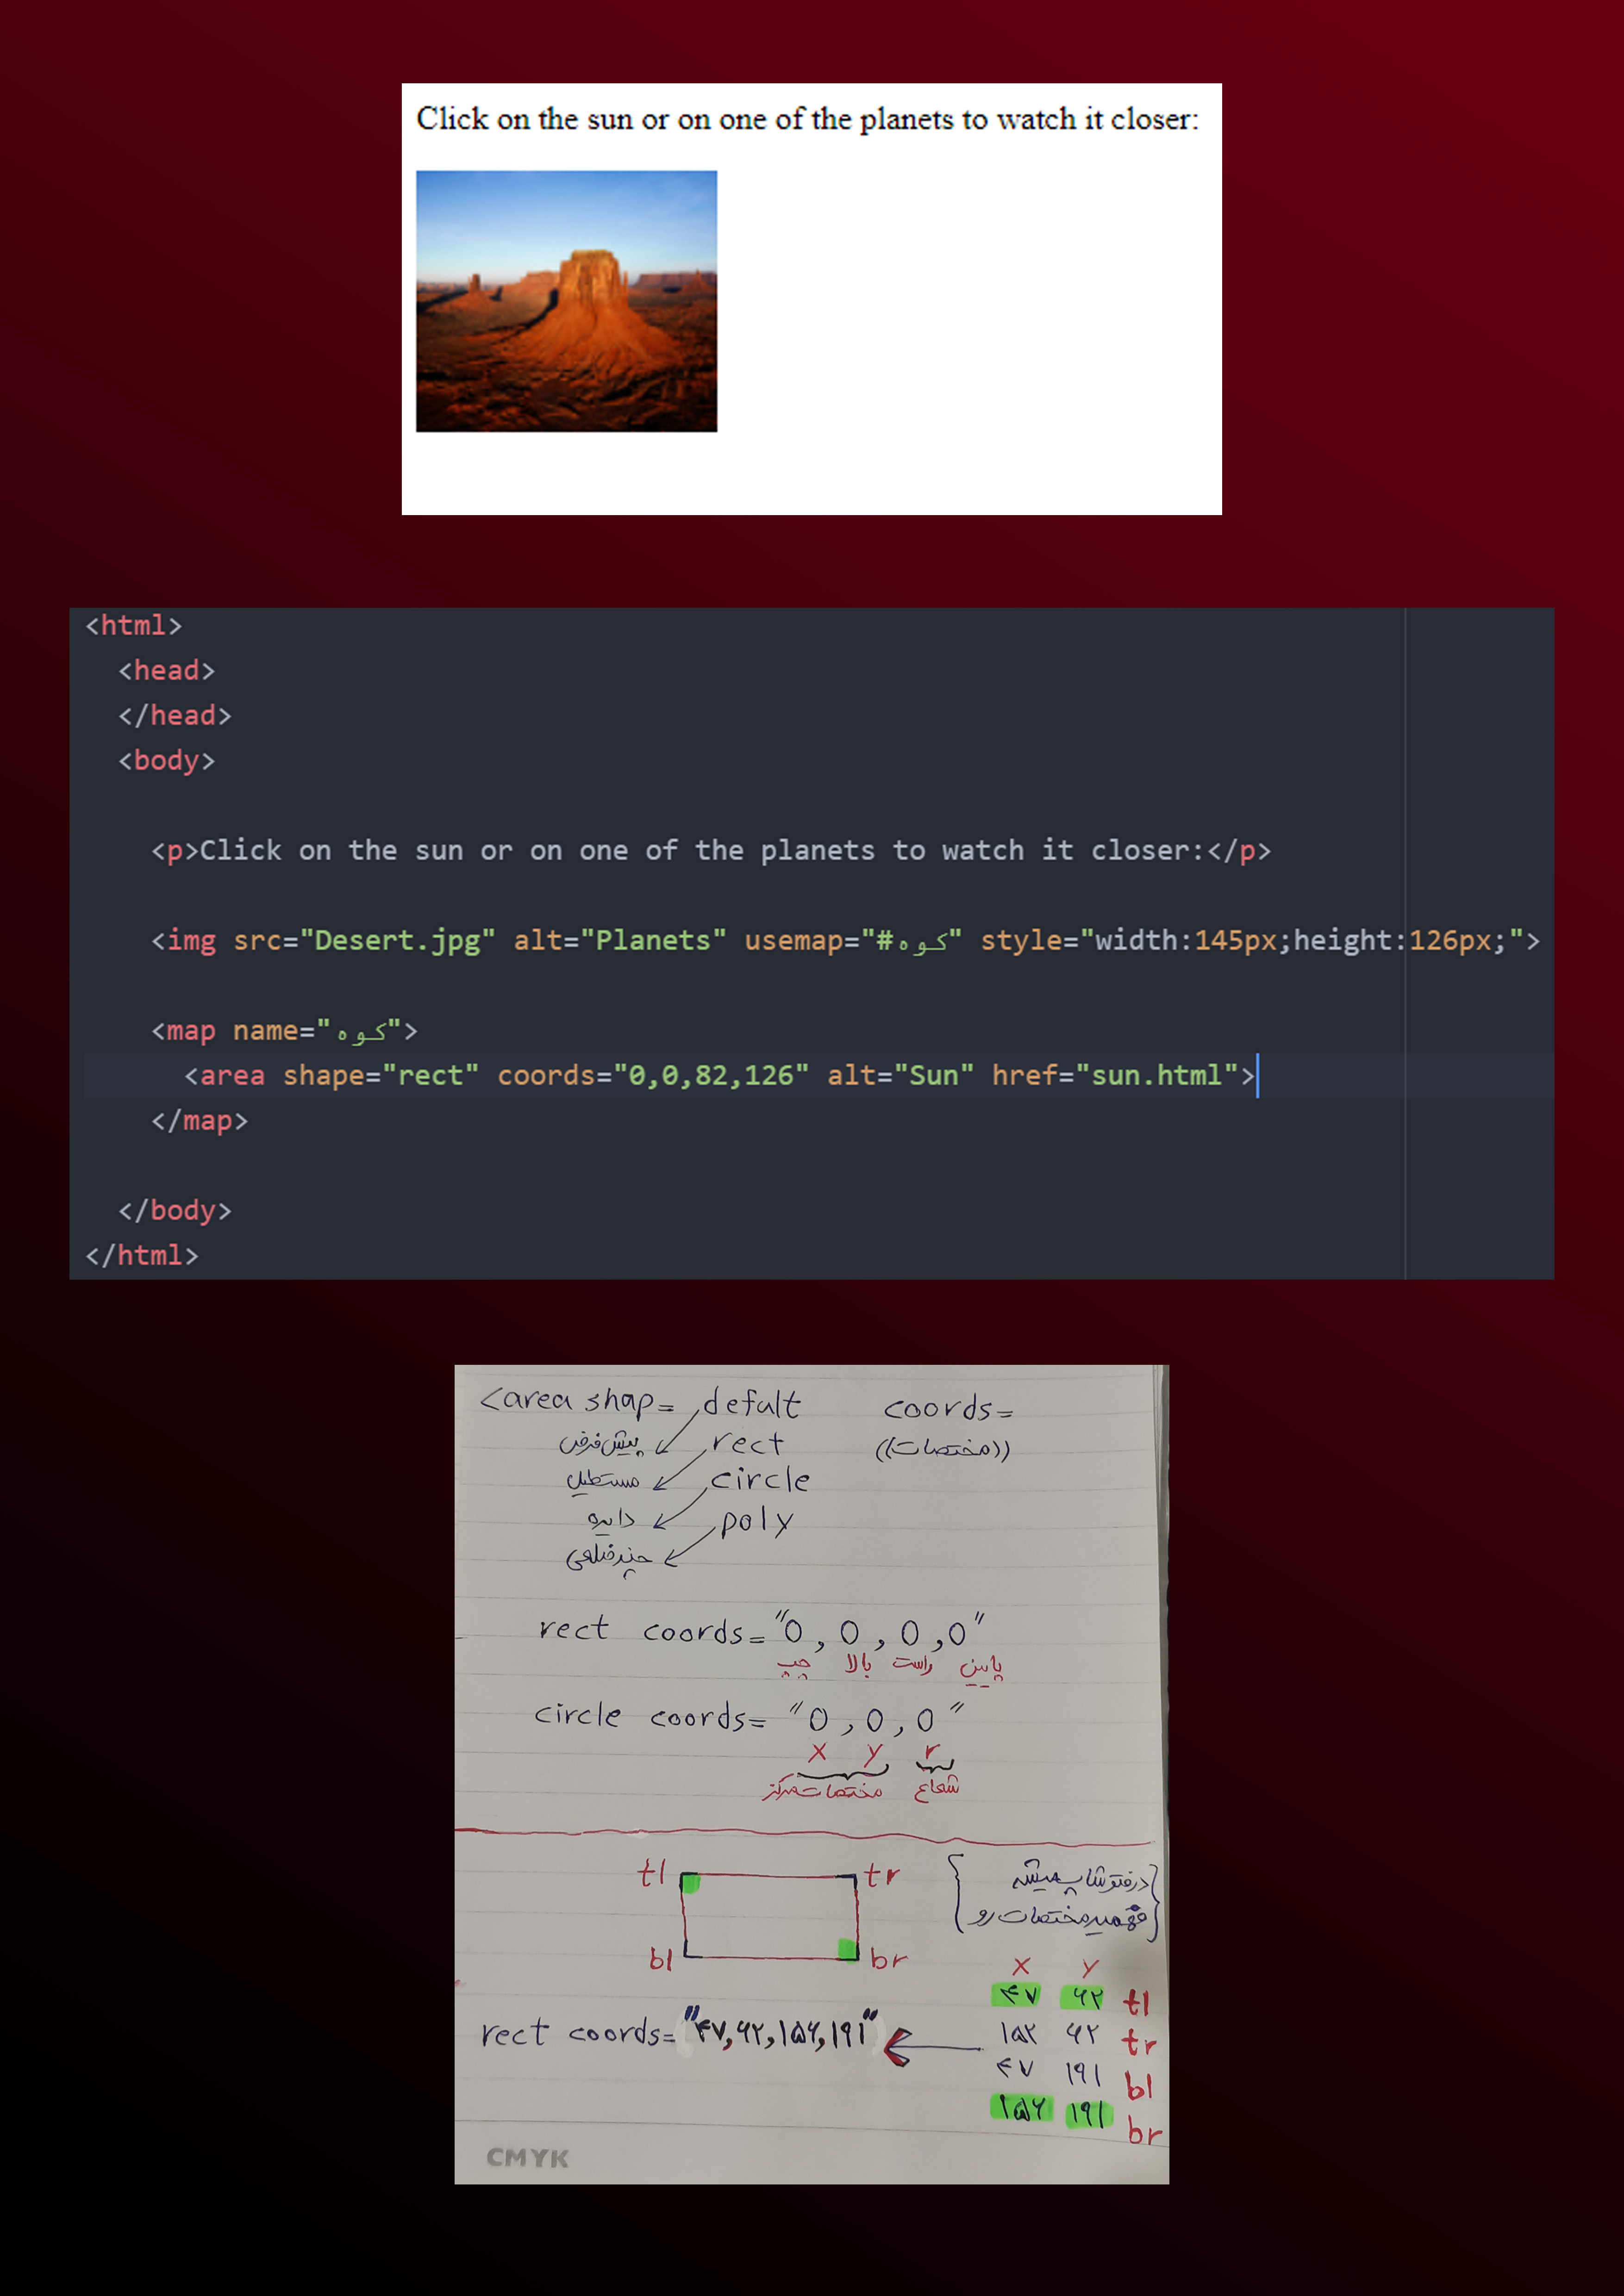 Click on the sun or on one of the planets to watch it closer:
<html>
<head>
</head>
<body>
<p>Click on the sun or on one of the planets to watch it closer:</p>
<img src="Desert.jpg" alt="Planets" usemap="#کوه" style="width:145px;height:126px;">
<map name="کوه">
<area shape="rect" coords="0,0,82,126" alt="Sun" href="sun.html">
</map>
</body>
</html>
<area shap= defult coords=
پیش فرض rect ((مختصات))
مستطیل circle
دایره poly
چندضلعی
rect coords="0,0,0,0"
چپ بالا راست پایین
circle coords="0,0,0"
x y r
مختصات مرکز شعاع
tl tr
درفتوشاپ میشه
فهمید مختصات رو
bl br
x y
۴۷ ۶۲ tl
۱۵۲ ۶۲ tr
rect coords="۴۷,۶۲,۱۵۶,۱۹۱"
۴۷ ۱۹۱ bl
۱۵۶ ۱۹۱ br
CMYK